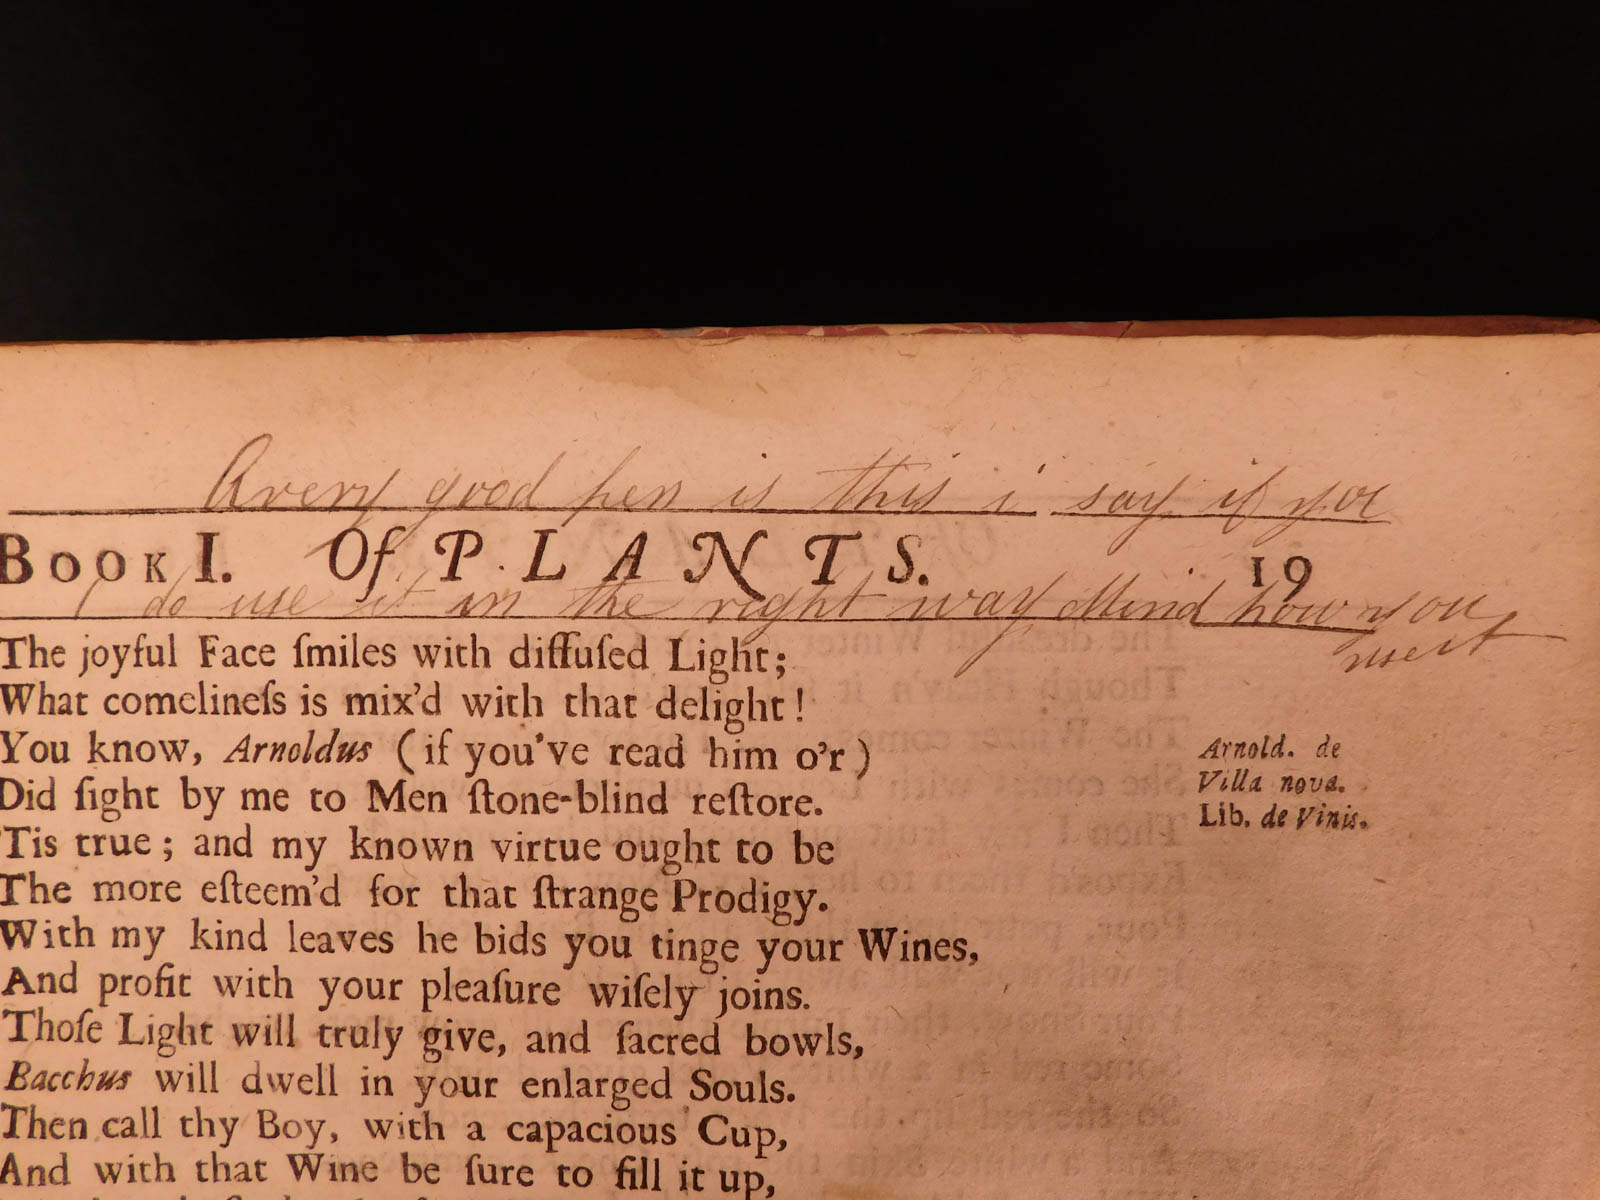 A very good pen is this i say if you
BOOK I. Of PLANTS. 19
do use it in the right way Mind how you
use it
The joyful Face ſmiles with diffuſed Light;
What comelineſs is mix'd with that delight!
You know, Arnoldus (if you've read him o'r)
Arnold. de
Villa nova.
Lib. de Vinis.
Did ſight by me to Men ſtone-blind reſtore.
'Tis true; and my known virtue ought to be
The more eſteem'd for that ſtrange Prodigy.
With my kind leaves he bids you tinge your Wines,
And profit with your pleaſure wiſely joins.
Thoſe Light will truly give, and ſacred bowls,
Bacchus will dwell in your enlarged Souls.
Then call thy Boy, with a capacious Cup,
And with that Wine be ſure to fill it up,